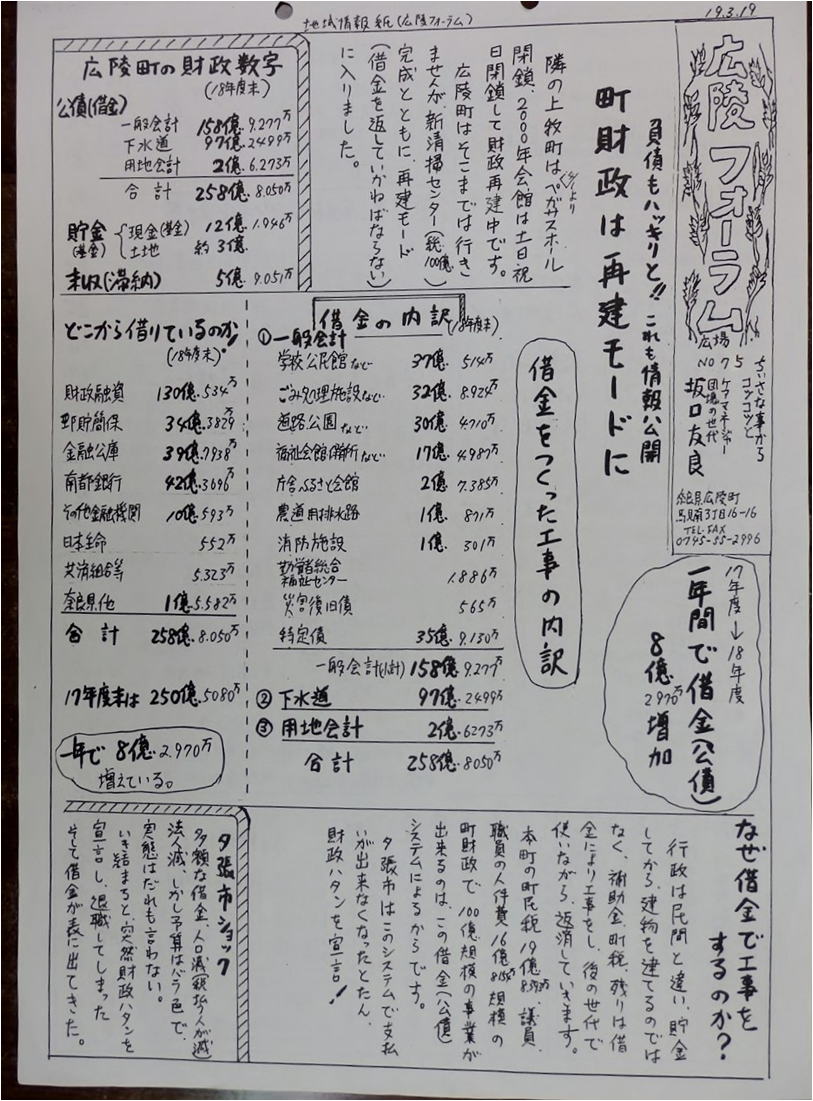 地域情報紙(広陵フォーラム)
19.3.19
広陵フォーラム
広場
NO 75
ちいさな事から
コツコツと
ケアマネージャー
団塊の世代
坂口友良
奈良県広陵町
馬見南3丁目16-16
TEL.FAX
0745-55-2996
負債もハッキリと!!これも情報公開
町財政は再建モードに
隣の上牧町はペガサスホール
4/1より
閉鎖、2000年会館は土日祝
日閉鎖して財政再建中です。
広陵町はそこまでは行き
ませんが、新清掃センター(総100億)
完成とともに、再建モード
(借金を返していかねばならない)
に入りました。
広陵町の財政数字
(18年度末)
公債(借金)
一般会計 158億.9.277万
下水道 97億.2499万
用地会計 2億.6.273万
合計 258億.8.050万
貯金(基金)
現金(基金) 12億.1.946万
土地 約3億
未収(滞納) 5億.9.051万
17年度→18年度
一年間で借金(公債)
8億2970万増加
借金をつくった工事の内訳
借金の内訳(18年度末)
①一般会計
学校公民館など 37億.514万
ごみ処理施設など 32億.8.924万
道路公園など 30億.4.710万
福祉会館保健所など 17億.4.987万
庁舎ふるさと会館 2億.7.385万
農道用排水路 1億.871万
消防施設 1億.301万
勤労者総合
福祉センター 1.886万
災害復旧債 565万
特定債 35億.9.130万
一般会計(小計) 158億.9.277万
②下水道 97億.2499万
③用地会計 2億.6273万
合計 258億.8050万
どこから借りているのか!
(18年度末)
財政融資 130億.534万
郵貯簡保 34億.3829万
金融公庫 39億.7938万
南都銀行 42億.3696万
その他金融機関 10億.593万
日本生命 552万
共済組合等 5.323万
奈良県他 1億.5.582万
合計 258億.8.050万
17年度末は 250億.5080万
一年で8億2.970万
増えている。
なぜ借金で工事を
するのか?
行政は民間と違い、貯金
してから、建物を建てるのでは
なく、補助金、町税、残りは借
金により工事をし、後の世代で
使いながら、返済していきます。
本町の町民税19億8.593万、議員、
職員の人件費16億8155万規模の
町財政で、100億規模の事業が
出来るのは、この借金(公債)
システムによるからです。
夕張市はこのシステムで支払
いが出来なくなったとたん、
財政ハタンを宣言!
夕張市ショック
多額な借金、人口減(税払う人が減)
法人減、しかし予算はバラ色で、
実態はだれも言わない。
いき詰まると、突然財政ハタンを
宣言し、退職してしまった
そして借金が表に出てきた。